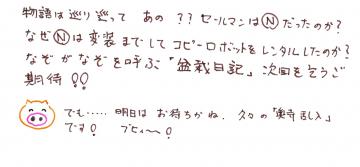 物語は巡り巡って あの ?? セールマンは Ⓝ だったのか?
なぜ Ⓝ は変装までして コピーロボットを レンタルしたのか?
なぞがなぞを呼ぶ「盆栽日記」次回を乞うご
期待!!
でも…… 明日は お待ちかね、久々の「奥寺乱入」
です! ブヒィ〜!